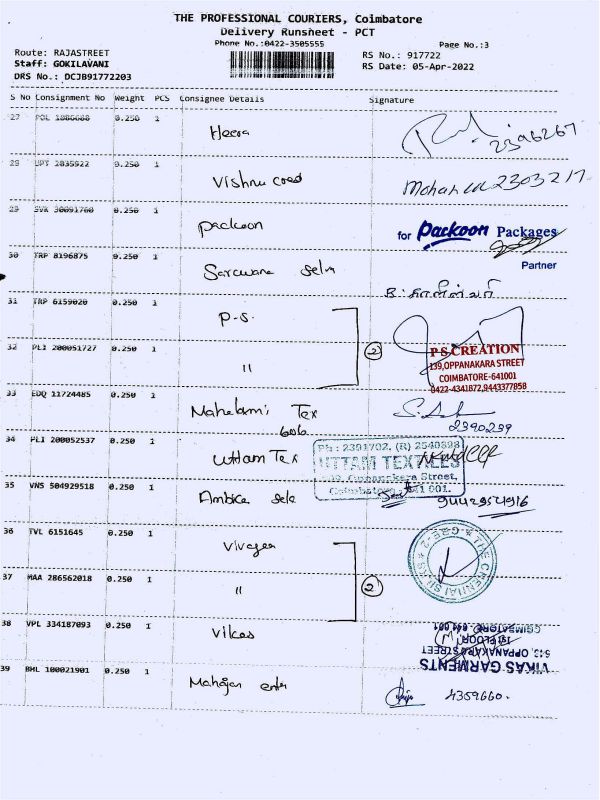 THE PROFESSIONAL COURIERS, Coimbatore
Delivery Runsheet - PCT
Phone No.:0422-3505555
Page No.:3
Route: RAJASTREET
RS No.: 917722
Staff: GOKILAVANI
RS Date: 05-Apr-2022
DRS No.: DCJB91772203
S No Consignment No Weight PCS Consignee Details Signature
27 POL 1886688 0.250 1 Heera
28 UPT 2835922 0.250 1 Vishnu
29 SVK 30091760 0.250 1 packoon
for Packoon Packages
Partner
30 TRP 8196875 0.250 1
31 TRP 6159020 0.250 1 P.S.
32 PLI 200051727 0.250 1 "
2
P S CREATION
139,OPPANAKARA STREET
COIMBATORE-641001
0422-4341872,9443377858
33 EDQ 11724485 0.250 1 Tex
2390239
34 PLI 200052537 0.250 1 Uttam Tex
Ph : 2391702, (R) 2540898
UTTAM TEXTILES
Oppanakara Street,
Coimbatore - 641 001.
35 VNS 504929518 0.250 1 Ambica
36 TVL 6151645 0.250 1
37 MAA 286562018 0.250 1 "
2
THE CHENNAI SILKS
CBE-2
38 VPL 334187093 0.250 1 Vikas
VIKAS GARMENTS
OPPANAKARA STREET
COIMBATORE - 641 001
39 BHL 100021901 0.250 1 Mahajan
4359660.